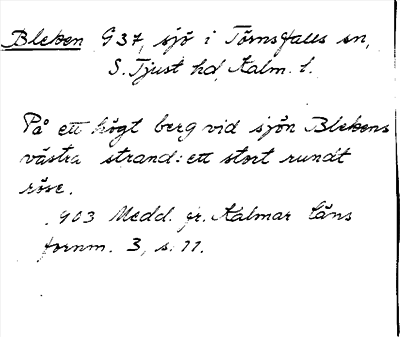 Bleken G37, sjö i Törnsfalls sn,
S. Tjust hd, Kalm. l.
På ett högt berg vid sjön Blekens
västra strand: ett stort rundt
röse.
903 Medd. fr. Kalmar läns
fornm. 3, s. 11.